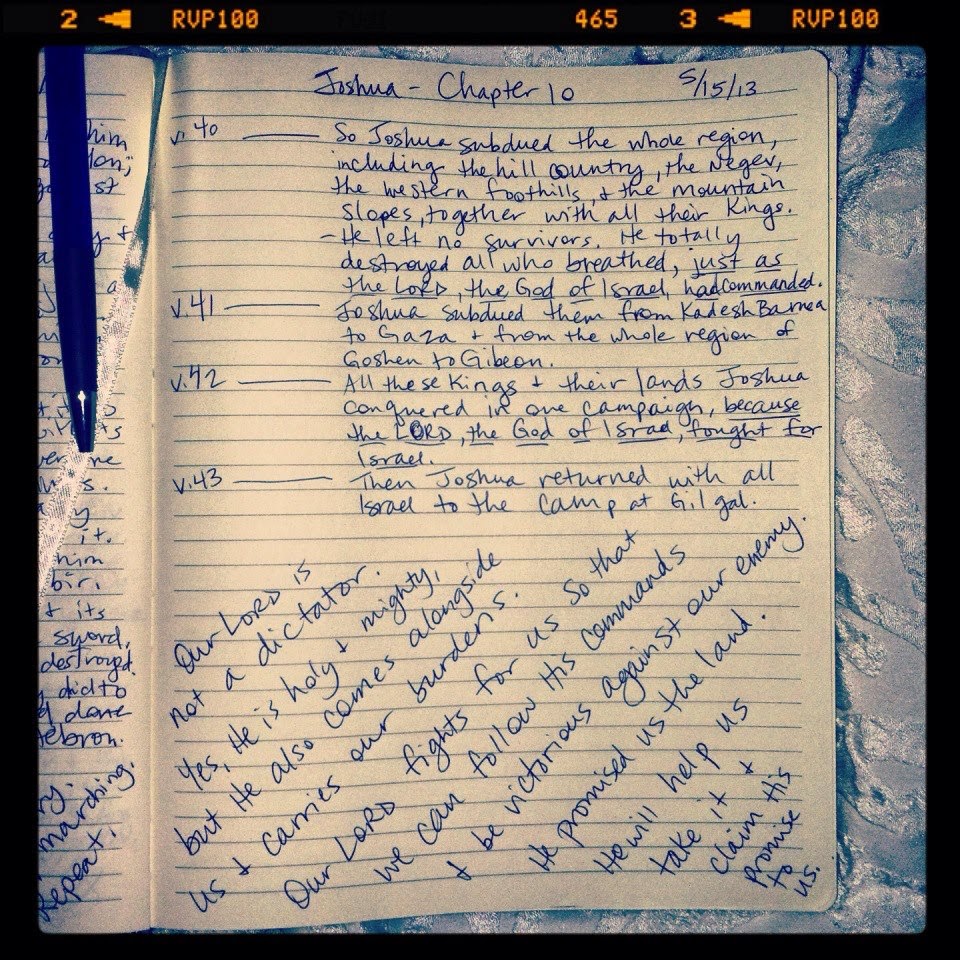 2 RVP100 FUJI 465 3 RVP100
him
st
y +
a
ver me
y
it.
him
bir.
+ its
sword,
destroyed
did to
d done
ebron.
ry.
marching.
Repeat.
Joshua - Chapter 10 5/15/13
v. 40 So Joshua subdued the whole region,
including the hill country, the Negev,
the western foothills, + the mountain
slopes, together with all their Kings.
- He left no survivors. He totally
destroyed all who breathed, just as
the LORD, the God of Israel, had commanded.
v.41 Joshua subdued them from Kadesh Barnea
to Gaza + from the whole region of
Goshen to Gibeon.
v.42 All these Kings + their lands Joshua
conquered in one campaign, because
the LORD, the God of Israel, fought for
Israel.
v.43 Then Joshua returned with all
Israel to the camp at Gilgal.
Our LORD is
not a dictator.
Yes, He is holy + mighty,
but He also comes alongside
us + carries our burdens.
Our LORD fights for us so that
we can follow His commands
+ be victorious against our enemy.
He promised us the land.
He will help us
take it +
claim His
promise
to
us.